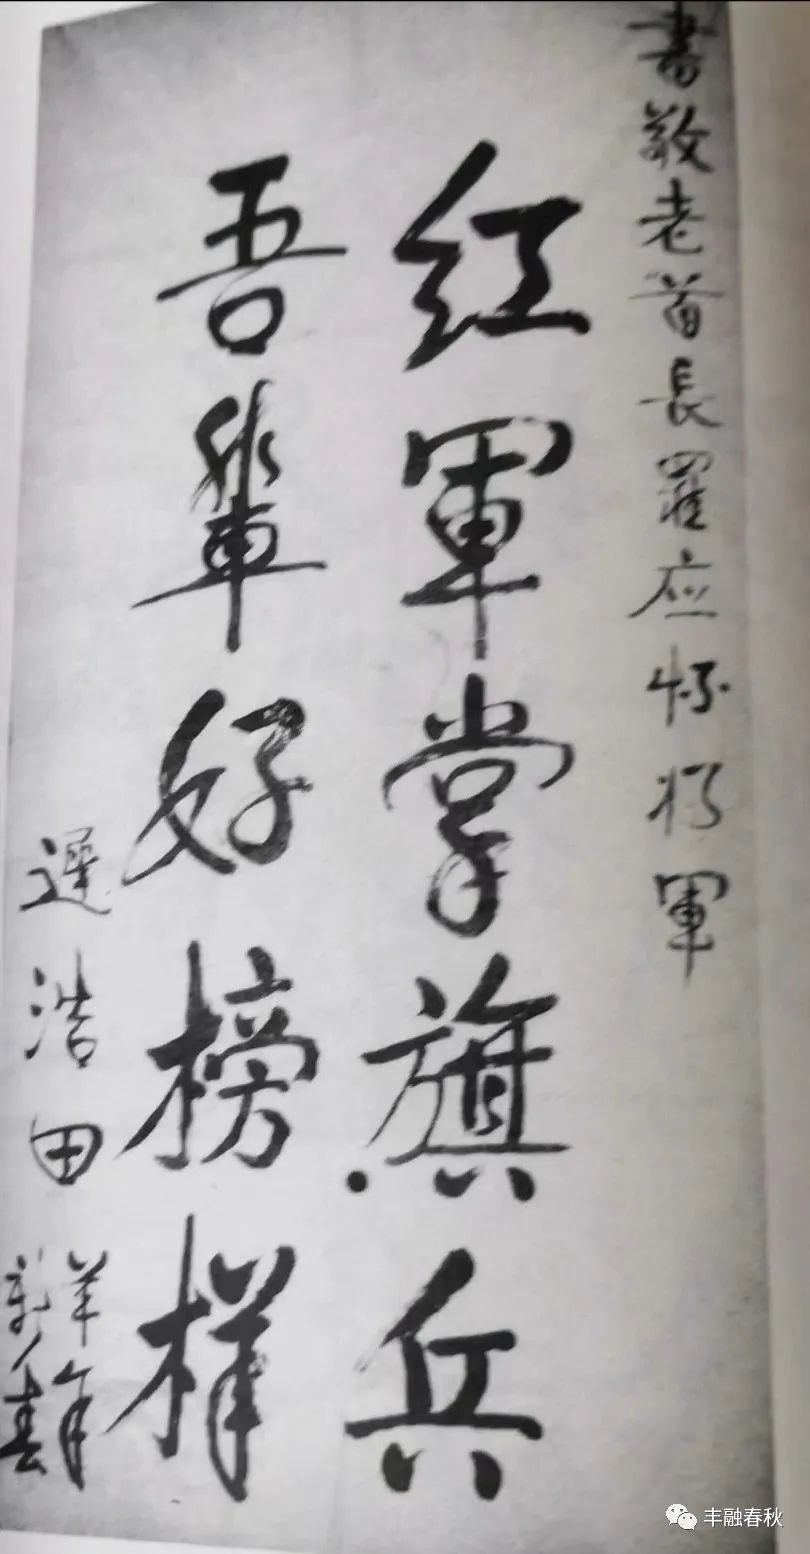 書敬老首長羅应怀将軍
红軍掌旗兵
吾輩好榜樣
遲浩田
羊年
新春
丰融春秋